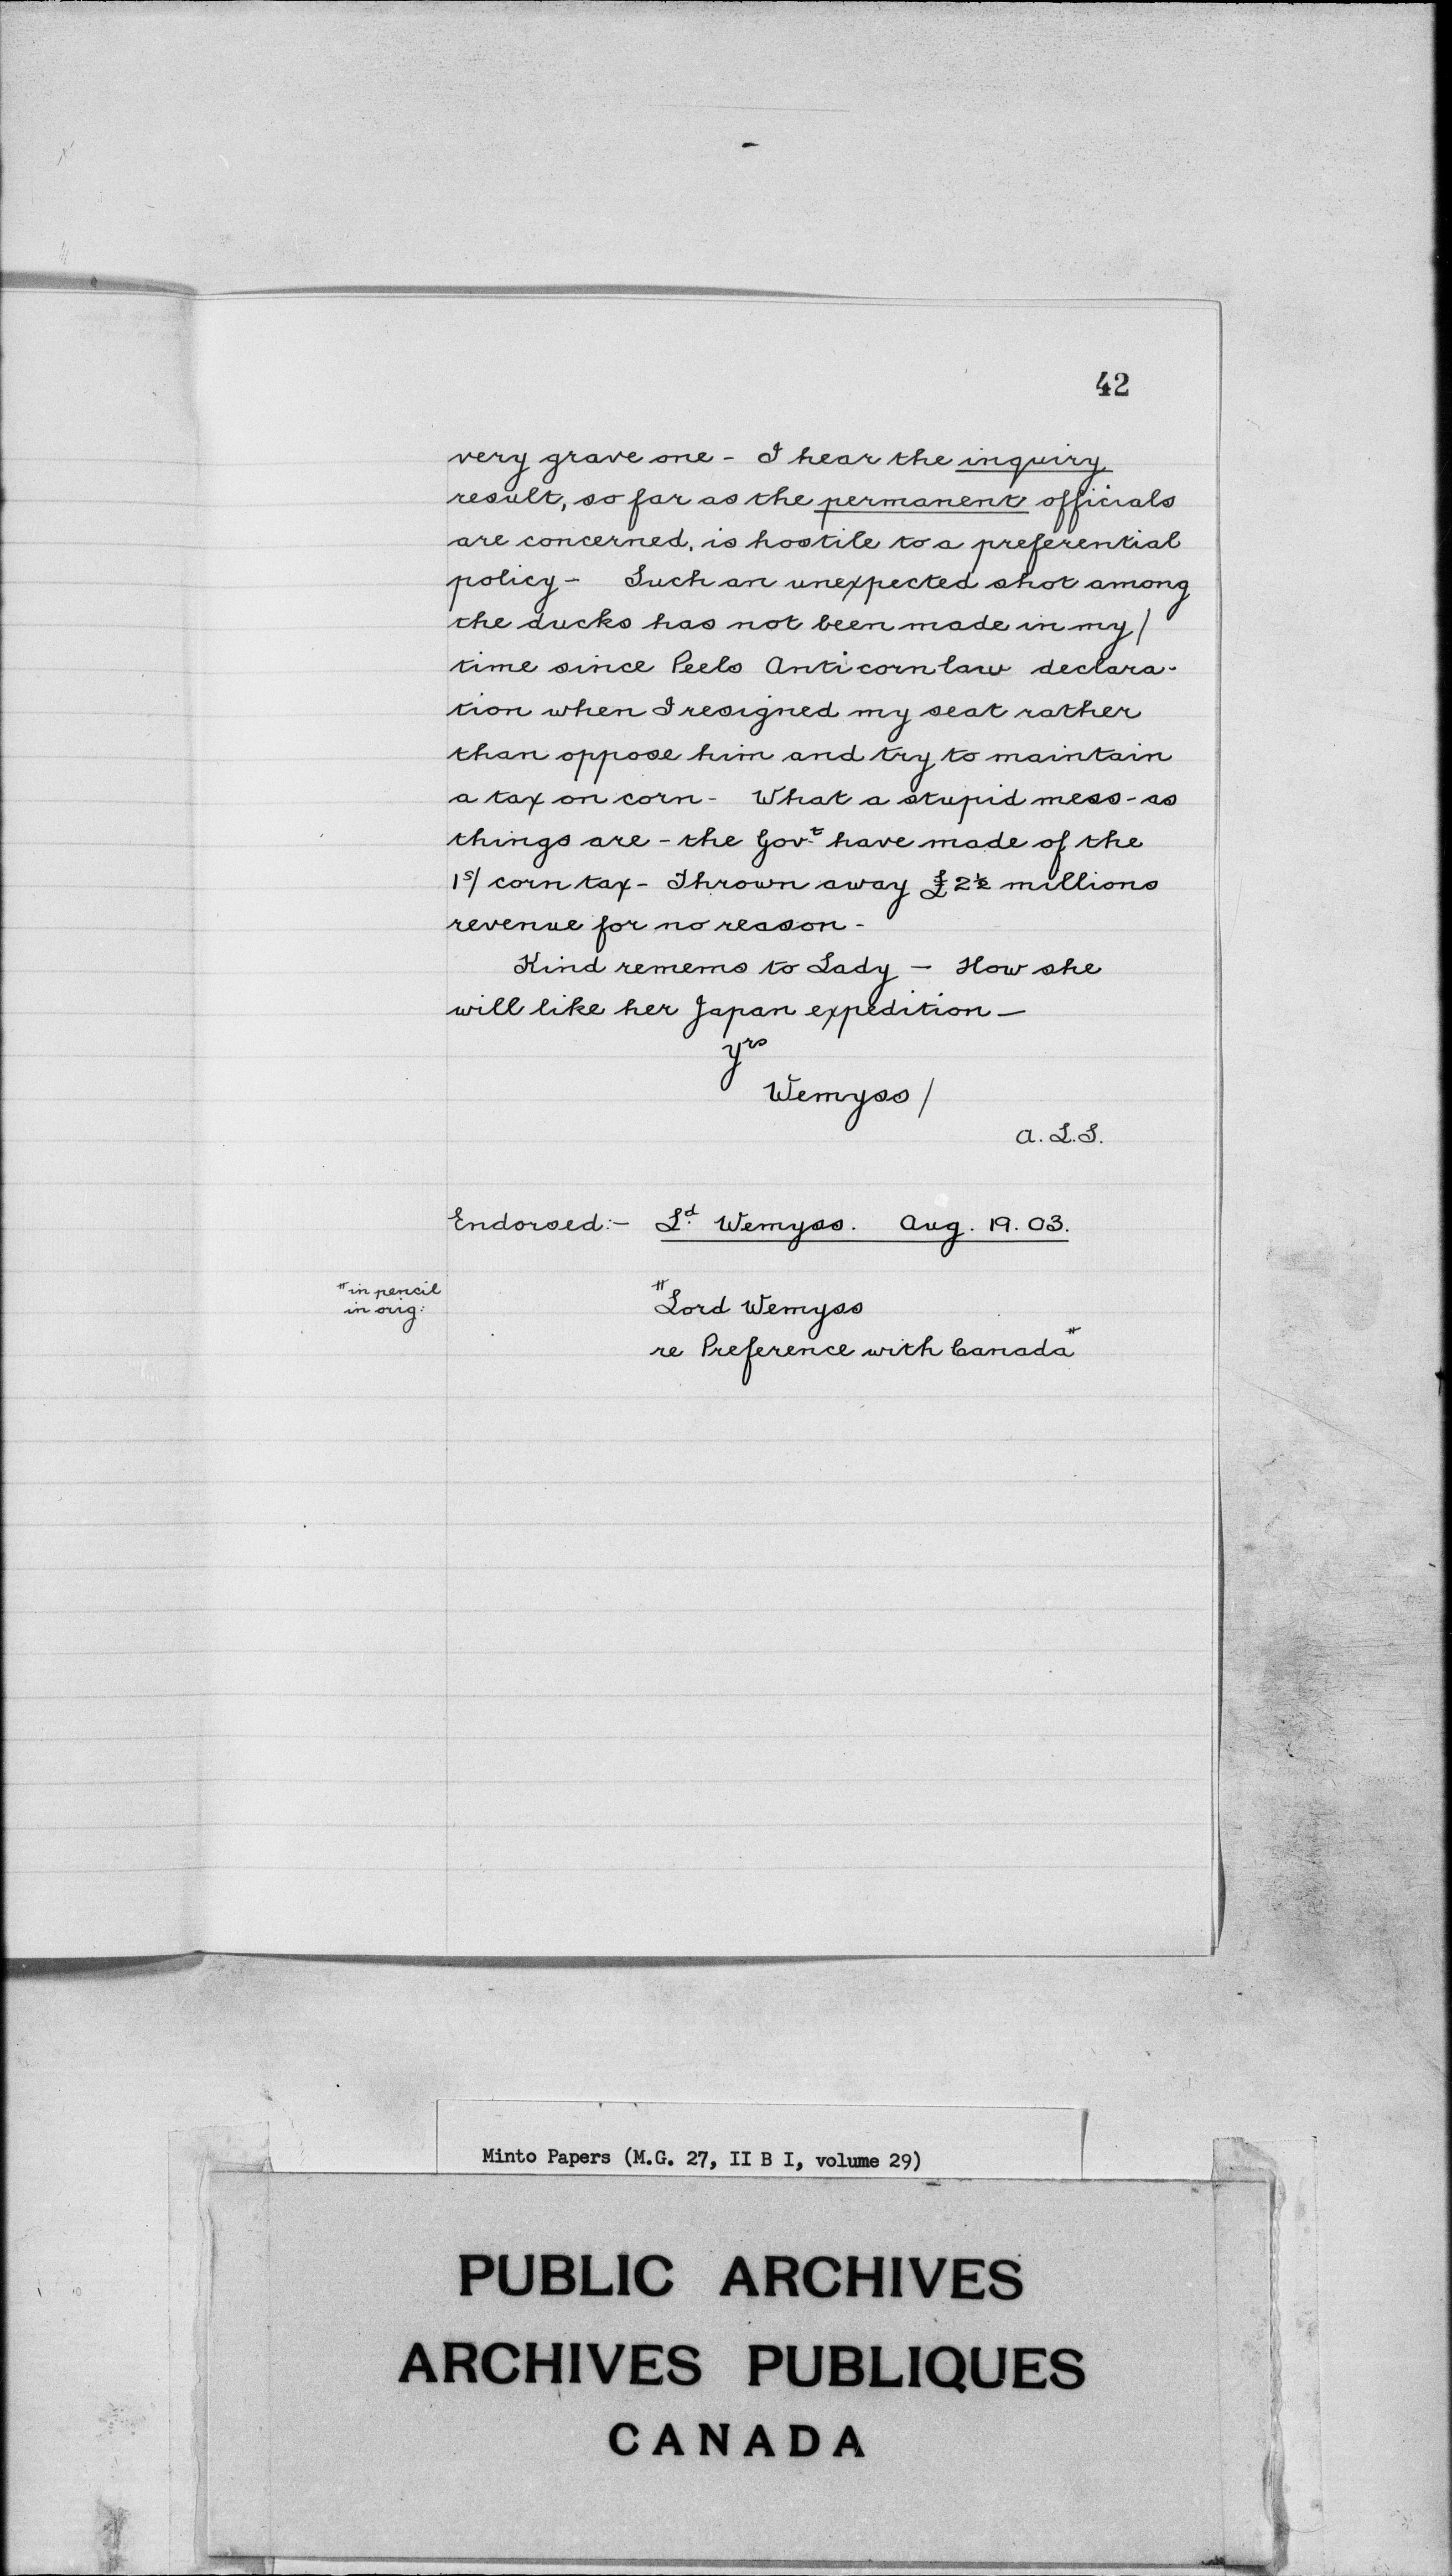 42
very grave one - I hear the inquiry
result, so far as the permanent officials
are concerned, is hostile to a preferential
policy - Such an unexpected shot among
the ducks has not been made in my /
time since Peels Anti corn law declara-
tion when I resigned my seat rather
than oppose him and try to maintain
a tax on corn - What a stupid mess - as
things are - the Govt have made of the
1s/ corn tax - Thrown away £2½ millions
revenue for no reason -
Kind remems to Lady — How she
will like her Japan expedition —
yrs
Wemyss /
A.L.S.
Endorsed:- Ld. Wemyss. Aug. 19. 03.
# in pencil
in orig:
# Lord Wemyss
re Preference with Canada #
Minto Papers (M.G. 27, II B I, volume 29)
PUBLIC ARCHIVES
ARCHIVES PUBLIQUES
CANADA